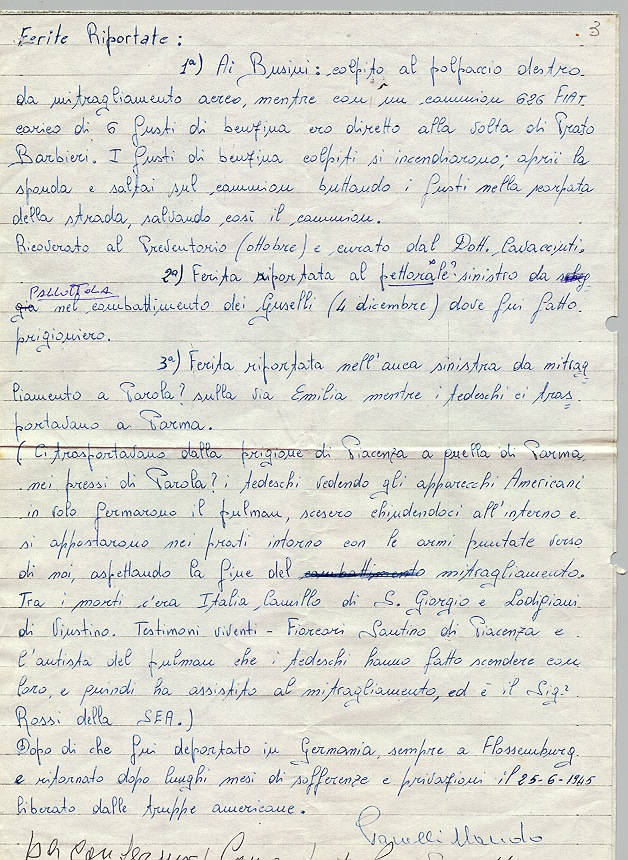 3
Ferite Riportate:
1ª) Ai Busini: colpito al polpaccio destro
da mitragliamento aereo, mentre con un cammion 626 FIAT
carico di 6 fusti di benzina ero diretto alla volta di Prato
Barbieri. I fusti di benzina colpiti si incendiarono; aprii la
sponda e saltai sul cammion buttando i fusti nella scarpata
della strada, salvando così il cammion.
Ricoverato al Preventorio (ottobre) e curato dal Dott.
2ª) Ferita riportata al pettorale? sinistro da
PALLOTTOLA
nel combattimento dei Guselli (4 dicembre) dove fui fatto
prigioniero.
3ª) Ferita riportata nell'anca sinistra da mitrag
liamento a Parola? sulla via Emilia mentre i tedeschi ci tras
portavano a Parma.
(Ci trasportavano dalla prigione di Piacenza a quella di Parma,
nei pressi di Parola? i tedeschi vedendo gli apparecchi Americani
in volo fermarono il pulman, scesero chiudendoci all'interno e
si appostarono nei prati intorno con le armi puntate verso
di noi, aspettando la fine del combattimento mitragliamento.
Tra i morti c'era Italia Camillo di S. Giorgio e Lodigiani
di Viustino. Testimoni viventi - Santino di Piacenza e
l'autista del pulman che i tedeschi hanno fatto scendere con
loro, e quindi ha assistito al mitragliamento, ed è il Sig.
Rossi della SEA.)
Dopo di che fui deportato in Germania, sempre a Flossemburg
e ritornato dopo lunghi mesi di sofferenze e privazioni il 25-6-1945
liberato dalle truppe americane.